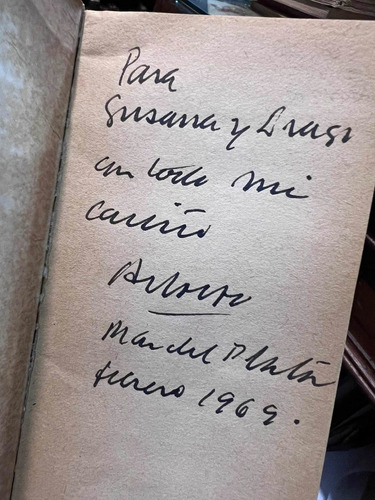 Para
Susana y Drago
con todo mi
cariño
Arturo
Mar del Plata
febrero 1969.